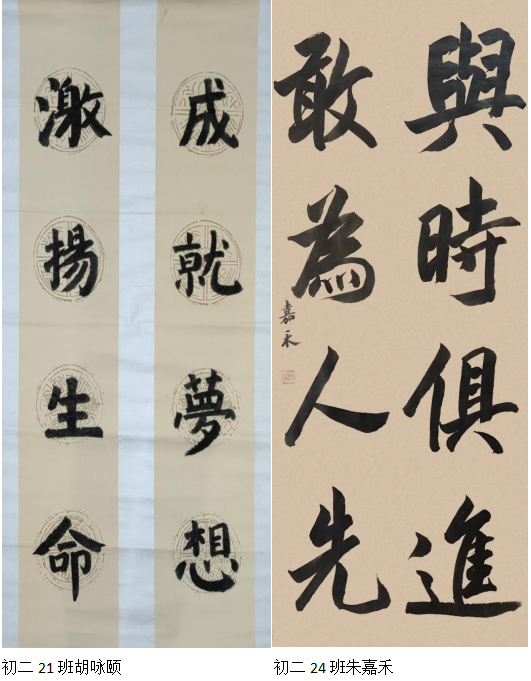 成就夢想
激揚生命
與時俱進
敢為人先
嘉禾
初二 21 班胡咏颐
初二 24 班朱嘉禾